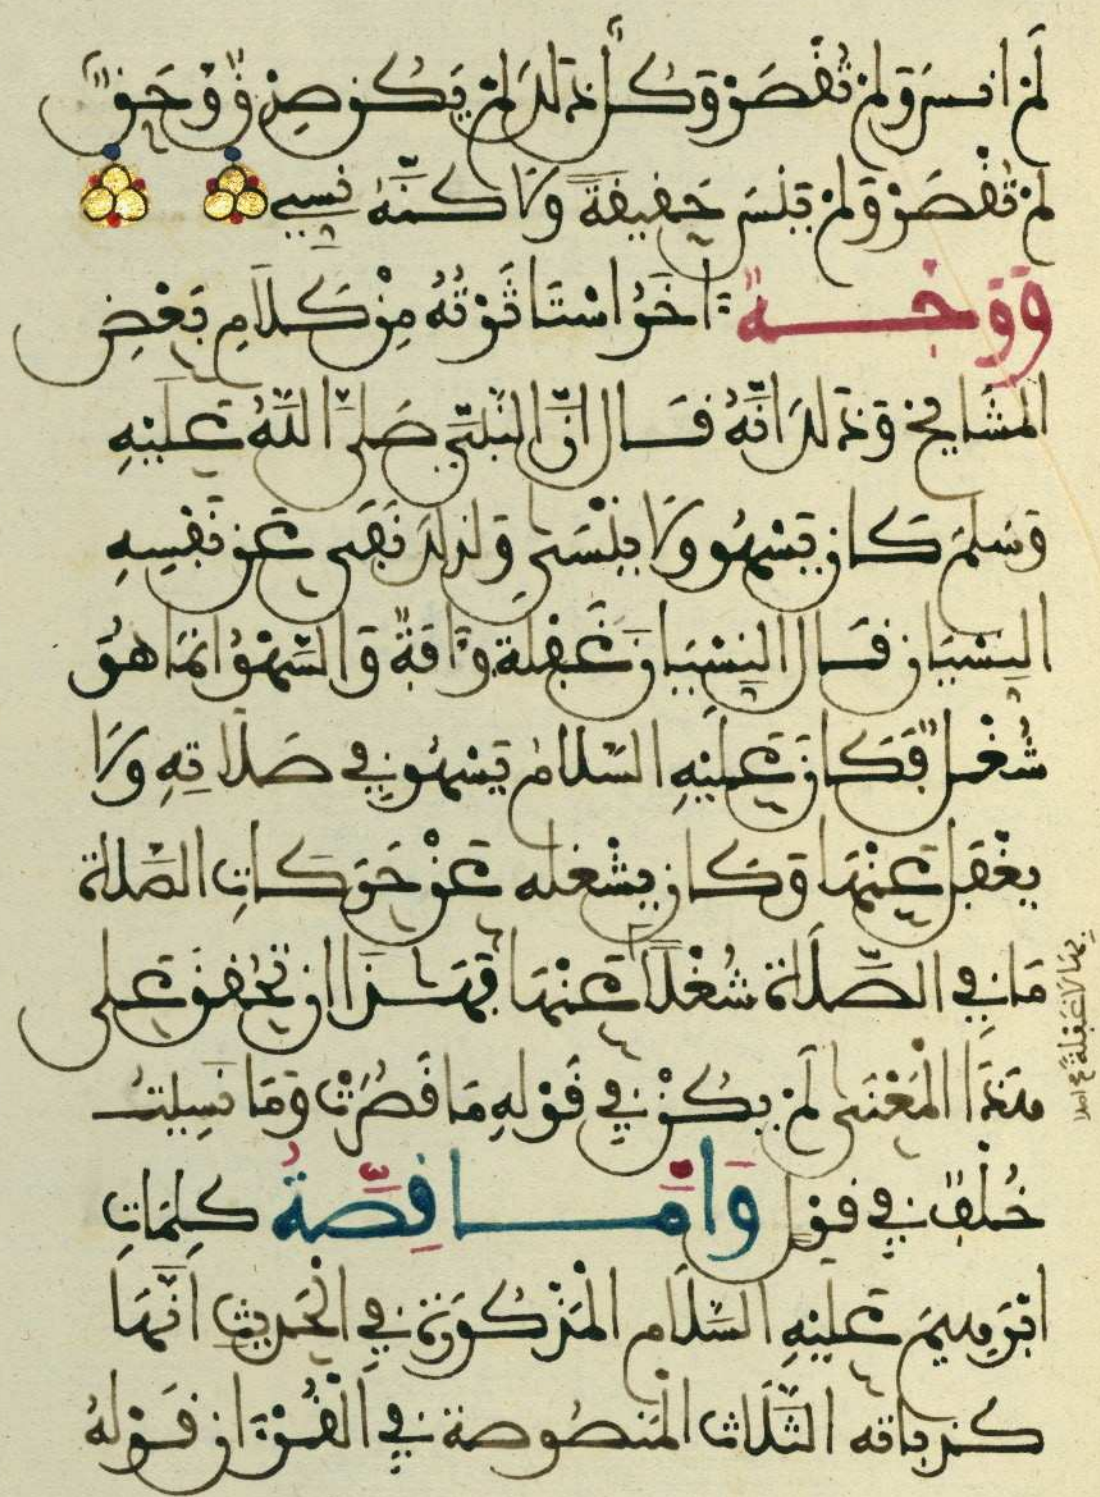 لَمْ انسَ وَلمْ تُقْصَرْ وَكُلُّ ذَلكَ لمْ يَكُن صِدْقٌ وَحَقٌّ
لمْ تُقْصَرْ وَلمْ يَنْسَ حَقِيقَةً وَلاكنَّهُ نُسِّيَ
وَوَجْهٌ
ءَاخَرُ اسْتَثَرْتُهُ مِنْ كَلَامِ بَعْضِ
المَشَايِخِ وَذَلكَ انَّهُ قَال انَّ النَّبِيَّ صَلَّى اللَّهُ عَلَيْهِ
وَسَلمَ كَان يَسْهُو وَلا يَنْسَى وَلذلكَ نَفَى عَن نَفْسِهِ
النِسْيَان قَال النِسْيَان غَفْلَةٌ وَءَافَةٌ وَالسَّهْوُ انمَا هُوَ
شُغْلٌ فَكَان عَلَيْهِ السَّلامُ يَسْهُو فِي صَلَاتِهِ وَلا
يغْفل عَنْهَا وَكَان يشْغله عَنْ حَرَكَاتِ الصَّلاة
مَا فِي الصَّلَاة شُغْلًا عَنْهَا فَهَذَا ان تحُقّقَ عَلى
هَذَا الْمَعْنَى لَمْ يكُنْ فِي قَوْلهِ مَا قَصُرَتْ وَمَا نسيتُ
خُلْفٌ فِي قَوْل وَامَّا قِصَّةُ كلِمَاتِ
ابْرَهِيمَ عَلَيْهِ السَّلَام الْمَذْكُورَة فِي الْحَدِيثِ انَّهَا
كذباته الثَّلَاث الْمَنصُوصة فِي الْقُرْءَان قَوْلهُ
بهَا لا غَفْلَةً عَ اصلا